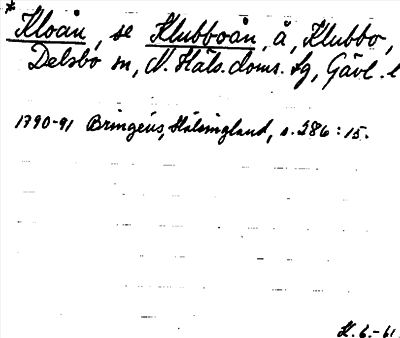 * Kloån, se Klubboån, å, Klubbo,
Delsbo sn, N. Häls. doms. sg, Gävl. l
1790-91 Bringéus, Hälsingland, s. 286:15.
H. 6.-61.